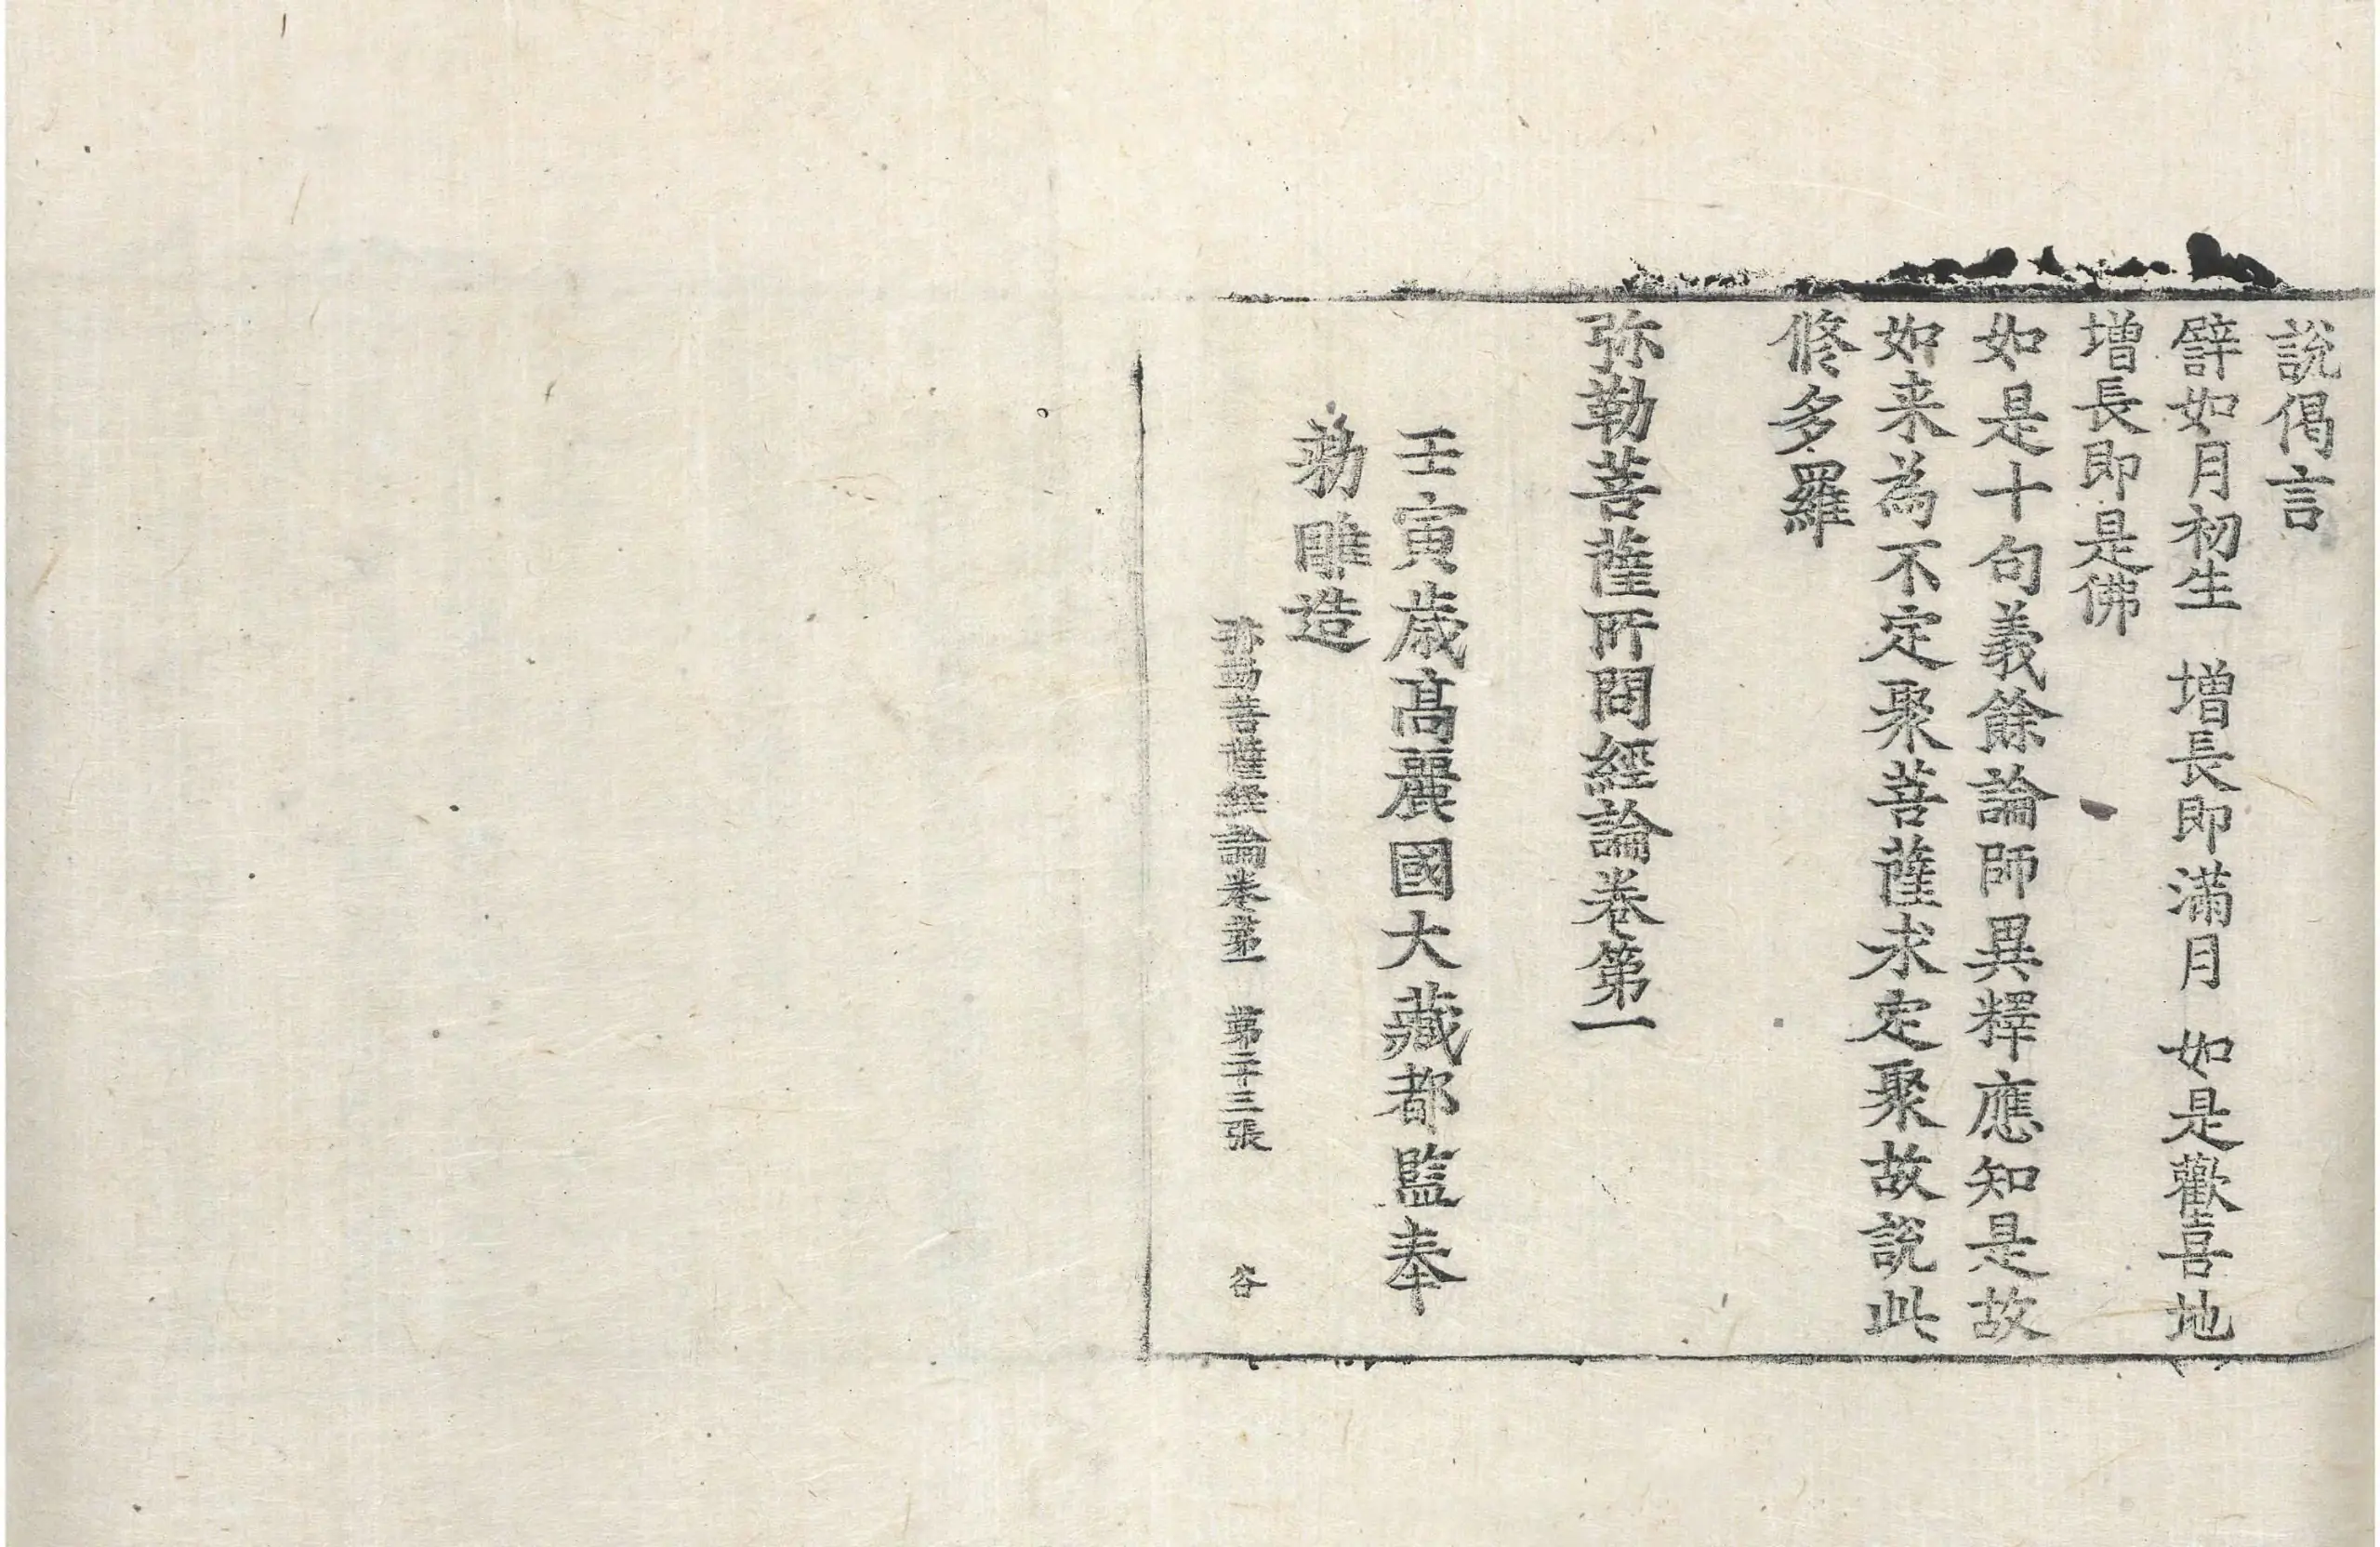 說偈言
譬如月初生　增長即滿月　如是歡喜地
增長即是佛
如是十句義餘論師異釋應知是故
如来為不定聚菩薩求定聚故說此
修多羅
弥勒菩薩所問經論卷第一
壬寅歲高麗國大藏都監奉
勑雕造
弥勒菩薩経論卷第一　第二十三張　谷